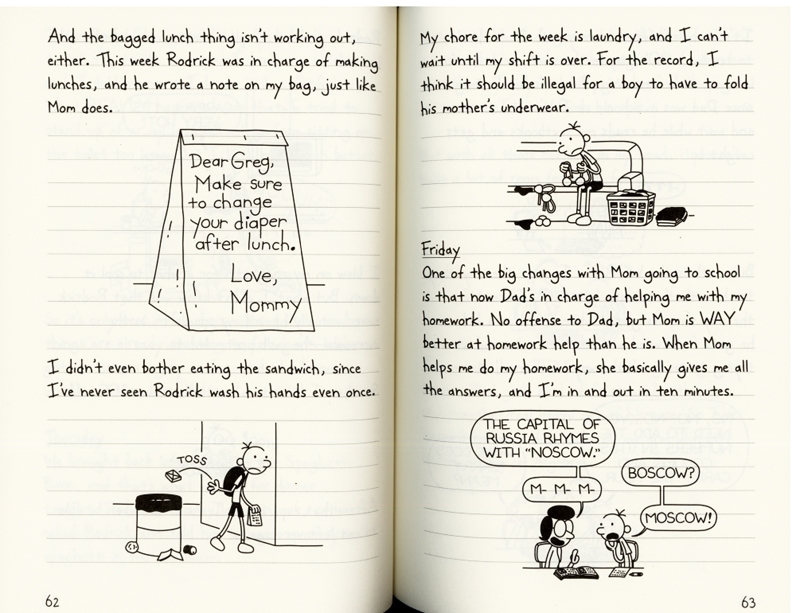 And the bagged lunch thing isn't working out,
either. This week Rodrick was in charge of making
lunches, and he wrote a note on my bag, just like
Mom does.
Dear Greg,
Make sure
to change
your diaper
after lunch.
Love,
Mommy
I didn't even bother eating the sandwich, since
I've never seen Rodrick wash his hands even once.
TOSS
62
My chore for the week is laundry, and I can't
wait until my shift is over. For the record, I
think it should be illegal for a boy to have to fold
his mother's underwear.
Friday
One of the big changes with Mom going to school
is that now Dad's in charge of helping me with my
homework. No offense to Dad, but Mom is WAY
better at homework help than he is. When Mom
helps me do my homework, she basically gives me all
the answers, and I'm in and out in ten minutes.
THE CAPITAL OF
RUSSIA RHYMES
WITH "NOSCOW."
M- M- M-
BOSCOW?
MOSCOW!
63